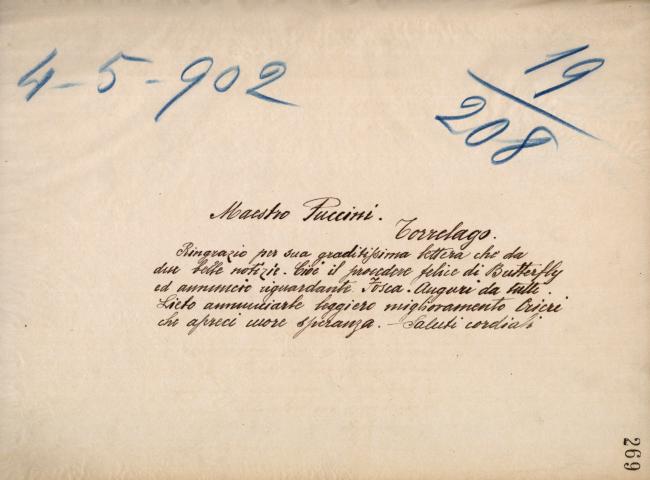 4-5-902
19
208
Maestro Puccini.
Torrelago.
Ringrazio per sua graditissima lettera che da
due belle notizie. Cioè il procedere felice di Butterfly
ed annuncio riguardante Tosca. Auguri da tutti.
Lieto annunciarle leggiero miglioramento
che apreci cuore speranza. – Saluti cordiali
269